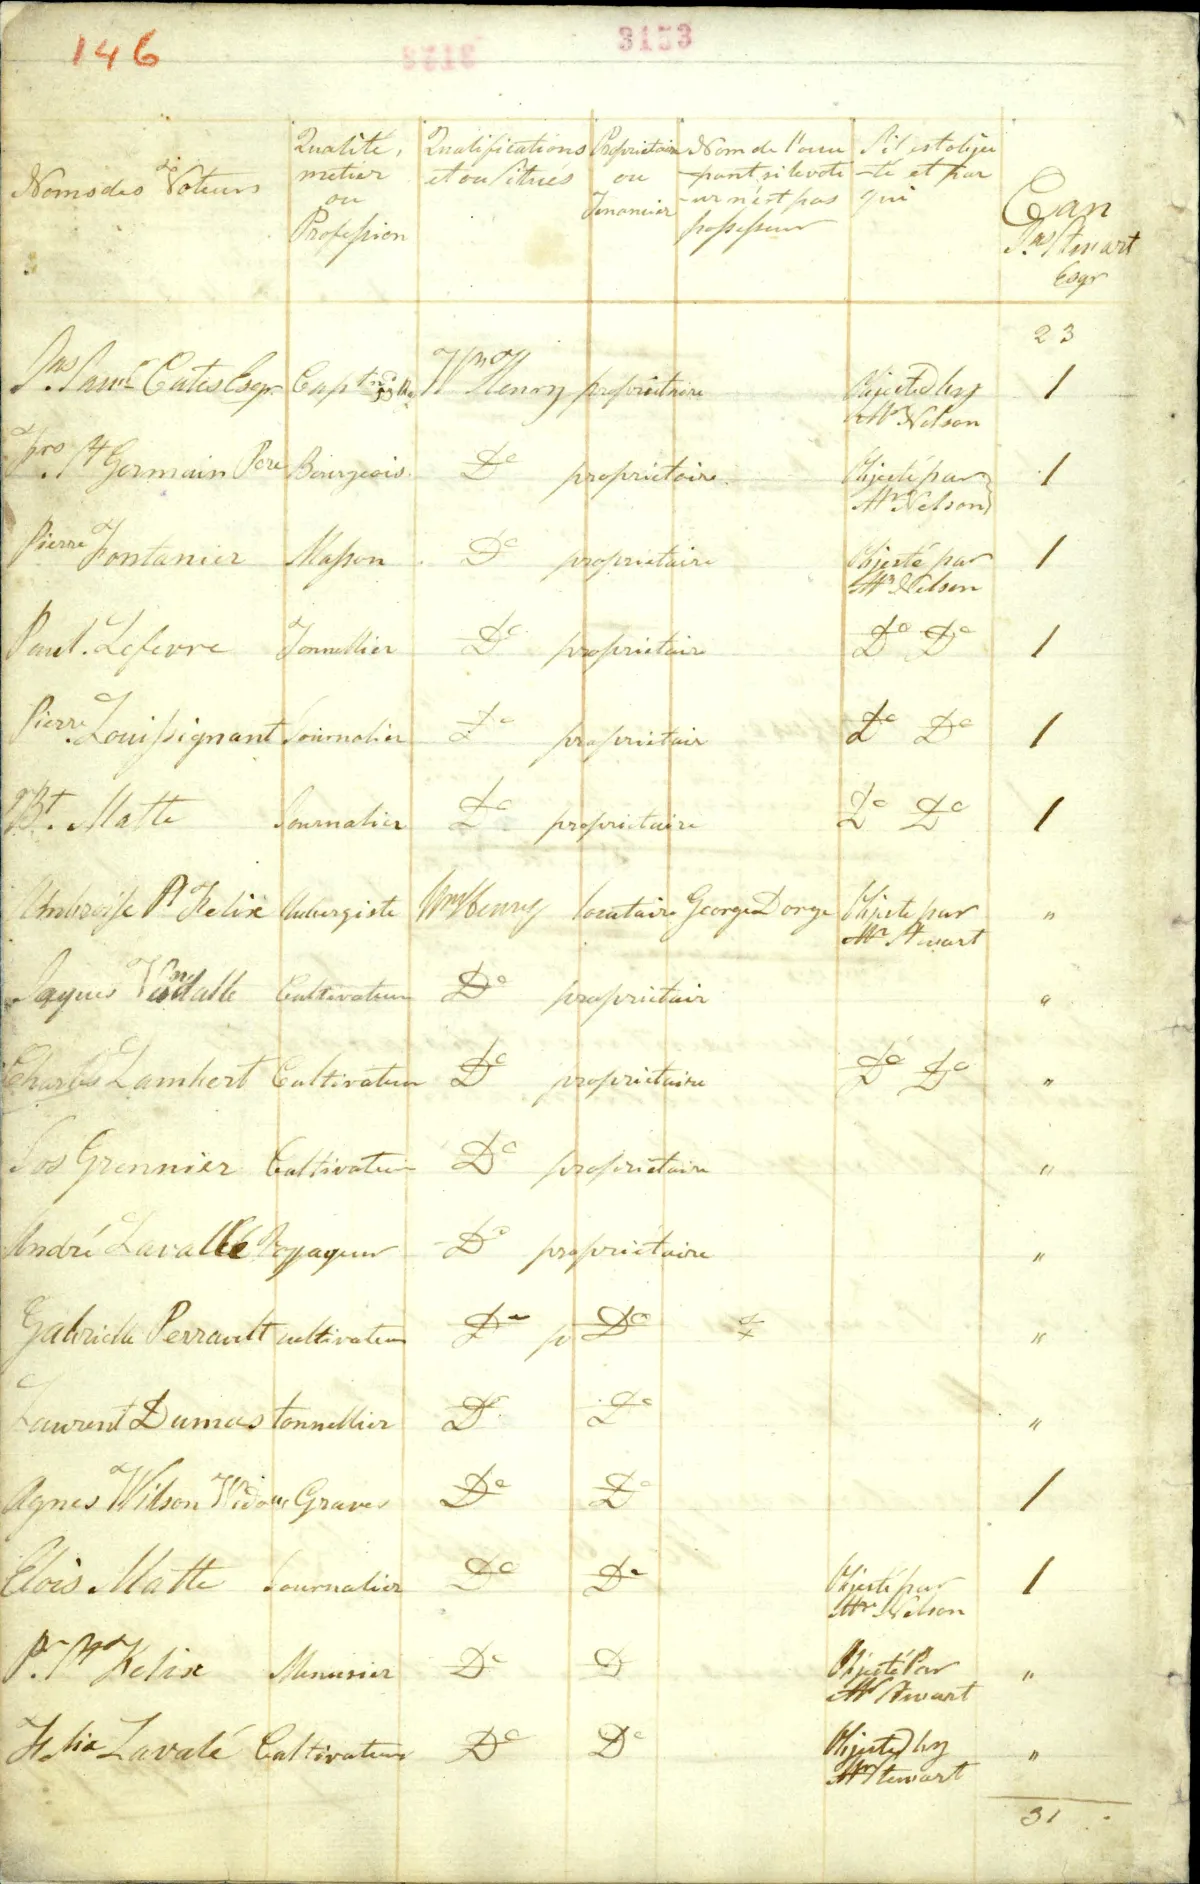 146
3153
Noms des Voteurs
Qualité, métier ou Profession
Qualifications et ou Situés
Propriétaire ou
Nom de l'occupant si le voteur n'est pas possesseur
S'il est objecté et par qui
Can
Jas Stewart
Esqr
23
Jas Saml Cates Esqr Capt Wm Henry propriétaire Objected by Mr Nelson 1
Frs St Germain Pere Bourgeois Do propriétaire Objecté par Mr Nelson 1
Pierre Fontanier Masson Do propriétaire Objecté par Mr Nelson 1
Paul Lefevre Tonnellier Do propriétaire Do Do 1
Pierre Louissignant Journalier Do propriétair Do Do 1
JBt. Matte Journalier Do propriétaire Do Do 1
Ambroise St Felix Aubergiste Wm Henry locataire George Dorge Objecté par Mr Stewart "
Jaques Cultivateur Do propriétair "
Charles Lambert Cultivateur Do propriétaire Do Do "
Jos Grennier Cultivateur Do propriétaire "
André Lavallé Voyageur Do propriétaire "
Gabrielle Perrault cultivateur Do p Do "
Laurent Dumas tonnellier Do Do "
Agnes Wilson Widow Graves Do Do 1
Elois Matte Journalier Do Do Objecté par Mr Nelson 1
Pr. St Felix Menusier Do D Objecté Par Mr Stewart "
Felix Lavalé Cultivateur Do Do Objected by Mr Stewart "
31